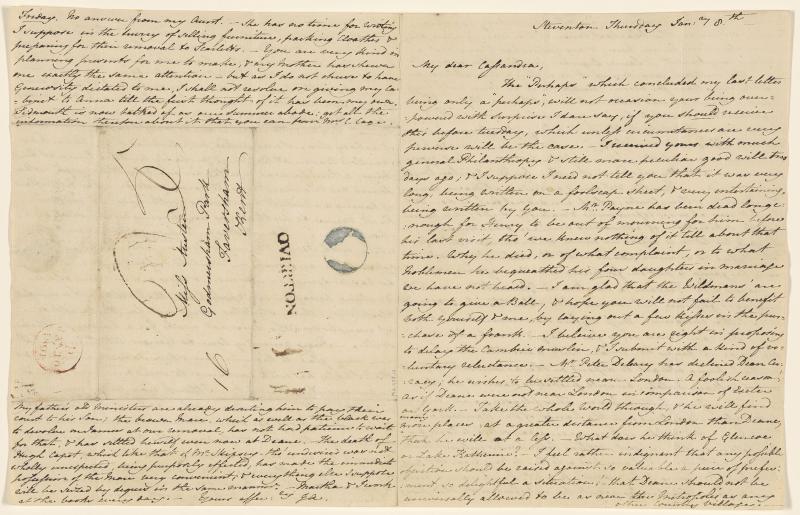 Friday. No answer from my Aunt. — She has no time for writing
I suppose in the hurry of selling furniture, packing Cloathes &
preparing for their removal to Scarletts. — You are very kind in
planning presents for me to make, & my Mother has shewn
me exactly the same attention — but as I do not chuse to have
Generosity dictated to me, I shall not resolve on giving my ca-
binet to Anna till the first thought of it has been my own.
Sidmouth is now talked of as our Summer abode; get all the
information therefore about it that you can from Mrs C. Cage.
Miss Austen
Godmersham Park
Faversham
Kent
OVERTON
16
My father's old Ministers are already deserting him to pay their
court to his Son; the brown Mare, which as well as the black was
to devolve on James at our removal, has not had patience to wait
for that, & has settled herself even now at Deane. — The death of
Hugh Capet, which like that of Mr Skipsey, tho' undesired was not
wholly unexpected, being purposely effected, has made the immediate
possession of the Mare very convenient; & everything else I suppose
will be seized by degrees in the same manner. — Martha & I work
at the books every day. — Yours affec:ly JA.
Steventon Thursday Jan:ry 8th
My dear Cassandra,
The "Perhaps" which concluded my last letter
being only a "perhaps", will not occasion your being over-
powered with Surprise I dare say, if you should receive
this before tuesday, which unless circumstances are very
perverse will be the case. — I received yours with much
general Philanthropy & still more peculiar good will two
days ago; & I suppose I need not tell you that it was very
long, being written on a foolscap sheet, & very entertaining,
being written by you. — Mr Payne has been dead long e-
nough for Henry to be out of mourning for him before
his last visit, tho' we knew nothing of it till about that
time. Why he died, or of what complaint, or to what
Noblemen he bequeathed his four daughters in marriage
we have not heard. — I am glad that the Wildmans' are
going to give a Ball, & hope you will not fail to benefit
both yourself & me, by laying out a few Kisses in the pur-
chase of a frank. — I beleive you are right in proposing
to delay the Cambric muslin, & I submit with a kind of vo-
luntary reluctance. — Mr Peter Debary has declined Deane Cu-
racy; he wishes to be settled near London. A foolish reason!
as if Deane were not near London in comparison of Exeter
or York. — Take the whole World through, & he will find
more places at a greater distance from London than Deane,
than he will at a less. — What does he think of Glencoe
or Lake Katherine? — I feel rather indignant that any possible
objection should be raised against so valuable a piece of prefer-
ment, so delightful a situation! — that Deane should not be
universally allowed to be as near the Metropolis as any
other Country Villages.